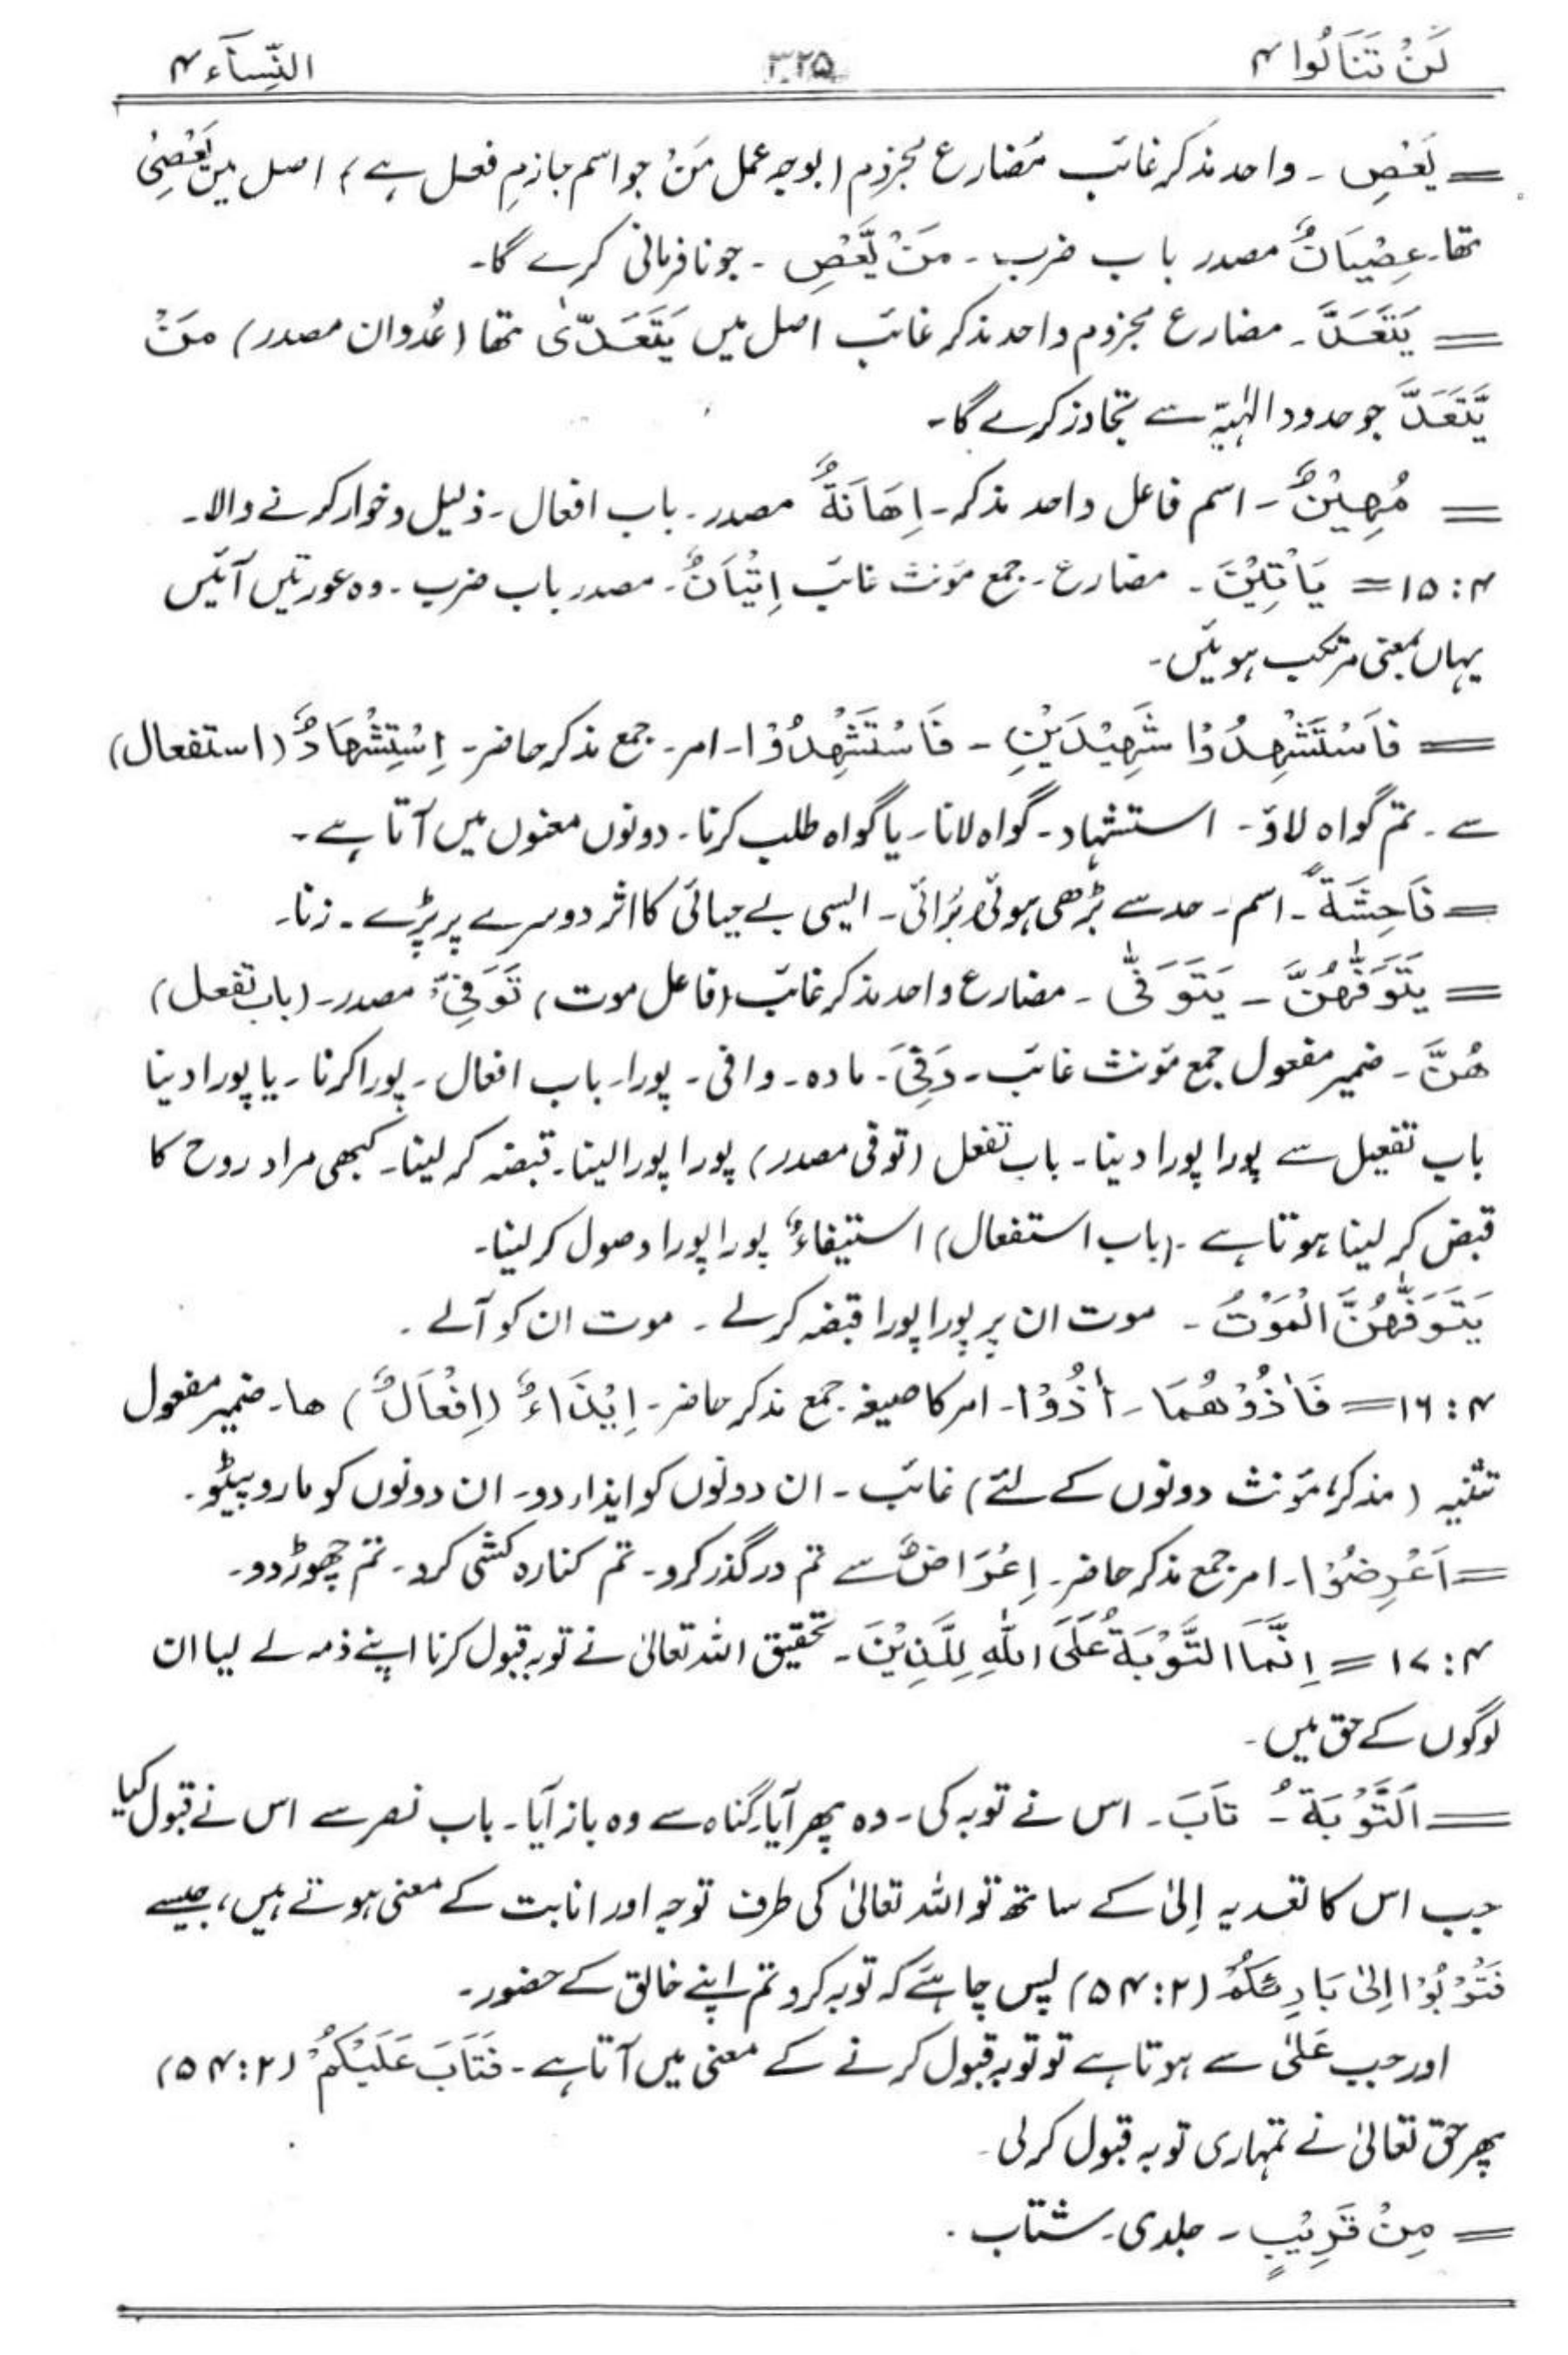 لَنْ تَنَالُوا ۴
۳۲۵
النِّسَآء ۴
= یَعْصِ ۔ واحد مذکر غائب مُضارع مجزوم (بوجہ عمل مَنْ جو اسم جازمِ فعل ہے) اصل میں یَعْصِیْ
تھا۔ عِصْیَانٌ مصدر باب ضرب ۔ مَنْ یَّعْصِ ۔ جو نافرمانی کرے گا۔
= یَتَعَدَّ ۔ مضارع مجزوم واحد مذکر غائب اصل میں یَتَعَدّٰی تھا (عُدوان مصدر) مَنْ
یَّتَعَدَّ جو حدود الٰہیّہ سے تجاوز کرے گا۔
= مُهِیْنٌ ۔ اسم فاعل واحد مذکر۔ اِهَانَةٌ مصدر۔ باب افعال۔ ذلیل وخوار کرنے والا۔
۴ : ۱۵ = یَاْتِیْنَ ۔ مضارع ۔ جمع مؤنث غائب اِتْیَانٌ۔ مصدر باب ضرب ۔ وہ عورتیں آئیں
یہاں بمعنی مرتکب ہوئیں۔
= فَاسْتَشْهِدُوْا شَهِیْدَیْنِ ۔ فَاسْتَشْهِدُوْا۔ امر۔ جمع مذکر حاضر۔ اِسْتِشْهَادٌ (استفعال)
سے ۔ تم گواہ لاؤ ۔ استشہاد۔ گواہ لانا۔ یا گواہ طلب کرنا۔ دونوں معنوں میں آتا ہے۔
= فَاحِشَةً ۔ اسم۔ حد سے بڑھی ہوئی بُرائی۔ ایسی بے حیائی کا اثر دوسرے پر پڑے ۔ زنا۔
= یَتَوَفّٰهُنَّ ۔ یَتَوَفّٰی ۔ مضارع واحد مذکر غائب (فاعل موت) تَوَفِّیٌ مصدر۔ (باب تفعل)
هُنَّ ۔ ضمیر مفعول جمع مؤنث غائب ۔ وَفِیَ ۔ مادہ ۔ وافی ۔ پورا۔ باب افعال ۔ پورا کرنا ۔ یا پورا دینا
باب تفعیل سے پورا پورا دینا ۔ باب تفعل (توفی مصدر) پورا پورا لینا۔ قبضہ کر لینا۔ کبھی مراد روح کا
قبض کر لینا ہوتا ہے ۔ (باب استفعال) استیفاءٌ پورا پورا وصول کر لینا۔
یَتَوَفّٰهُنَّ الْمَوْتُ ۔ موت ان پر پورا پورا قبضہ کرلے ۔ موت ان کو آلے ۔
۴ : ۱۶ = فَاٰذُوْهُمَا ۔ اٰذُوْا۔ امر کا صیغہ جمع مذکر حاضر۔ اِیْذَاءٌ (اِفْعَالٌ) ھا۔ ضمیر مفعول
تثنیہ (مذکر، مؤنث دونوں کے لئے) غائب ۔ ان دونوں کو ایذار دو۔ ان دونوں کو مارو پیٹو۔
= اَعْرِضُوْا۔ امر جمع مذکر حاضر۔ اِعْرَاضٌ سے تم درگذر کرو۔ تم کنارہ کشی کرو۔ تم چھوڑ دو۔
۴ : ۱۷ = اِنَّمَا التَّوْبَةُ عَلَی اللّٰهِ لِلَّذِیْنَ ۔ تحقیق اللہ تعالیٰ نے توبہ قبول کرنا اپنے ذمہ لے لیا ان
لوگوں کے حق میں۔
= اَلتَّوْبَةُ ۔ تَابَ ۔ اس نے توبہ کی۔ وہ پھر آیا۔ گناہ سے وہ باز آیا۔ باب نصر سے اس نے قبول کیا
جب اس کا تعدیہ اِلیٰ کے ساتھ تو اللہ تعالیٰ کی طرف توجہ اور انابت کے معنی ہوتے ہیں، جیسے
فَتُوْبُوْا اِلیٰ بَارِئِکُمْ (۲ : ۵۴) پس چاہئے کہ توبہ کرو تم اپنے خالق کے حضور۔
اور جب عَلیٰ سے ہوتا ہے تو توبہ قبول کرنے کے معنی میں آتا ہے ۔ فَتَابَ عَلَیْکُمْ (۲ : ۵۴)
پھر حق تعالیٰ نے تمہاری توبہ قبول کرلی۔
= مِنْ قَرِیْبٍ ۔ جلدی۔ شتاب ۔